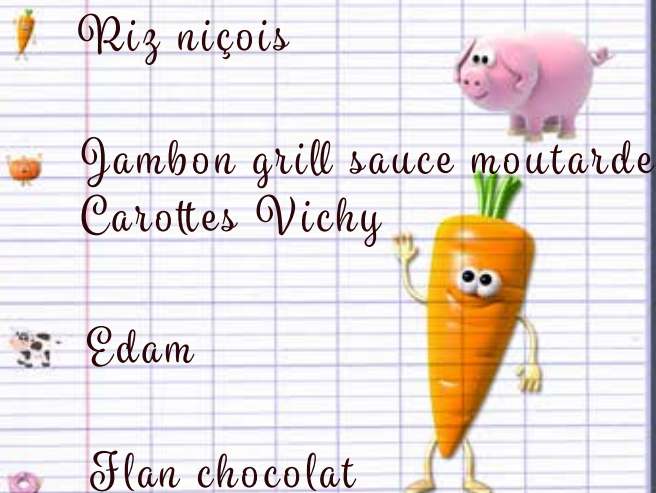 Riz niçois
Jambon grill sauce moutarde
Carottes Vichy
Edam
Flan chocolat